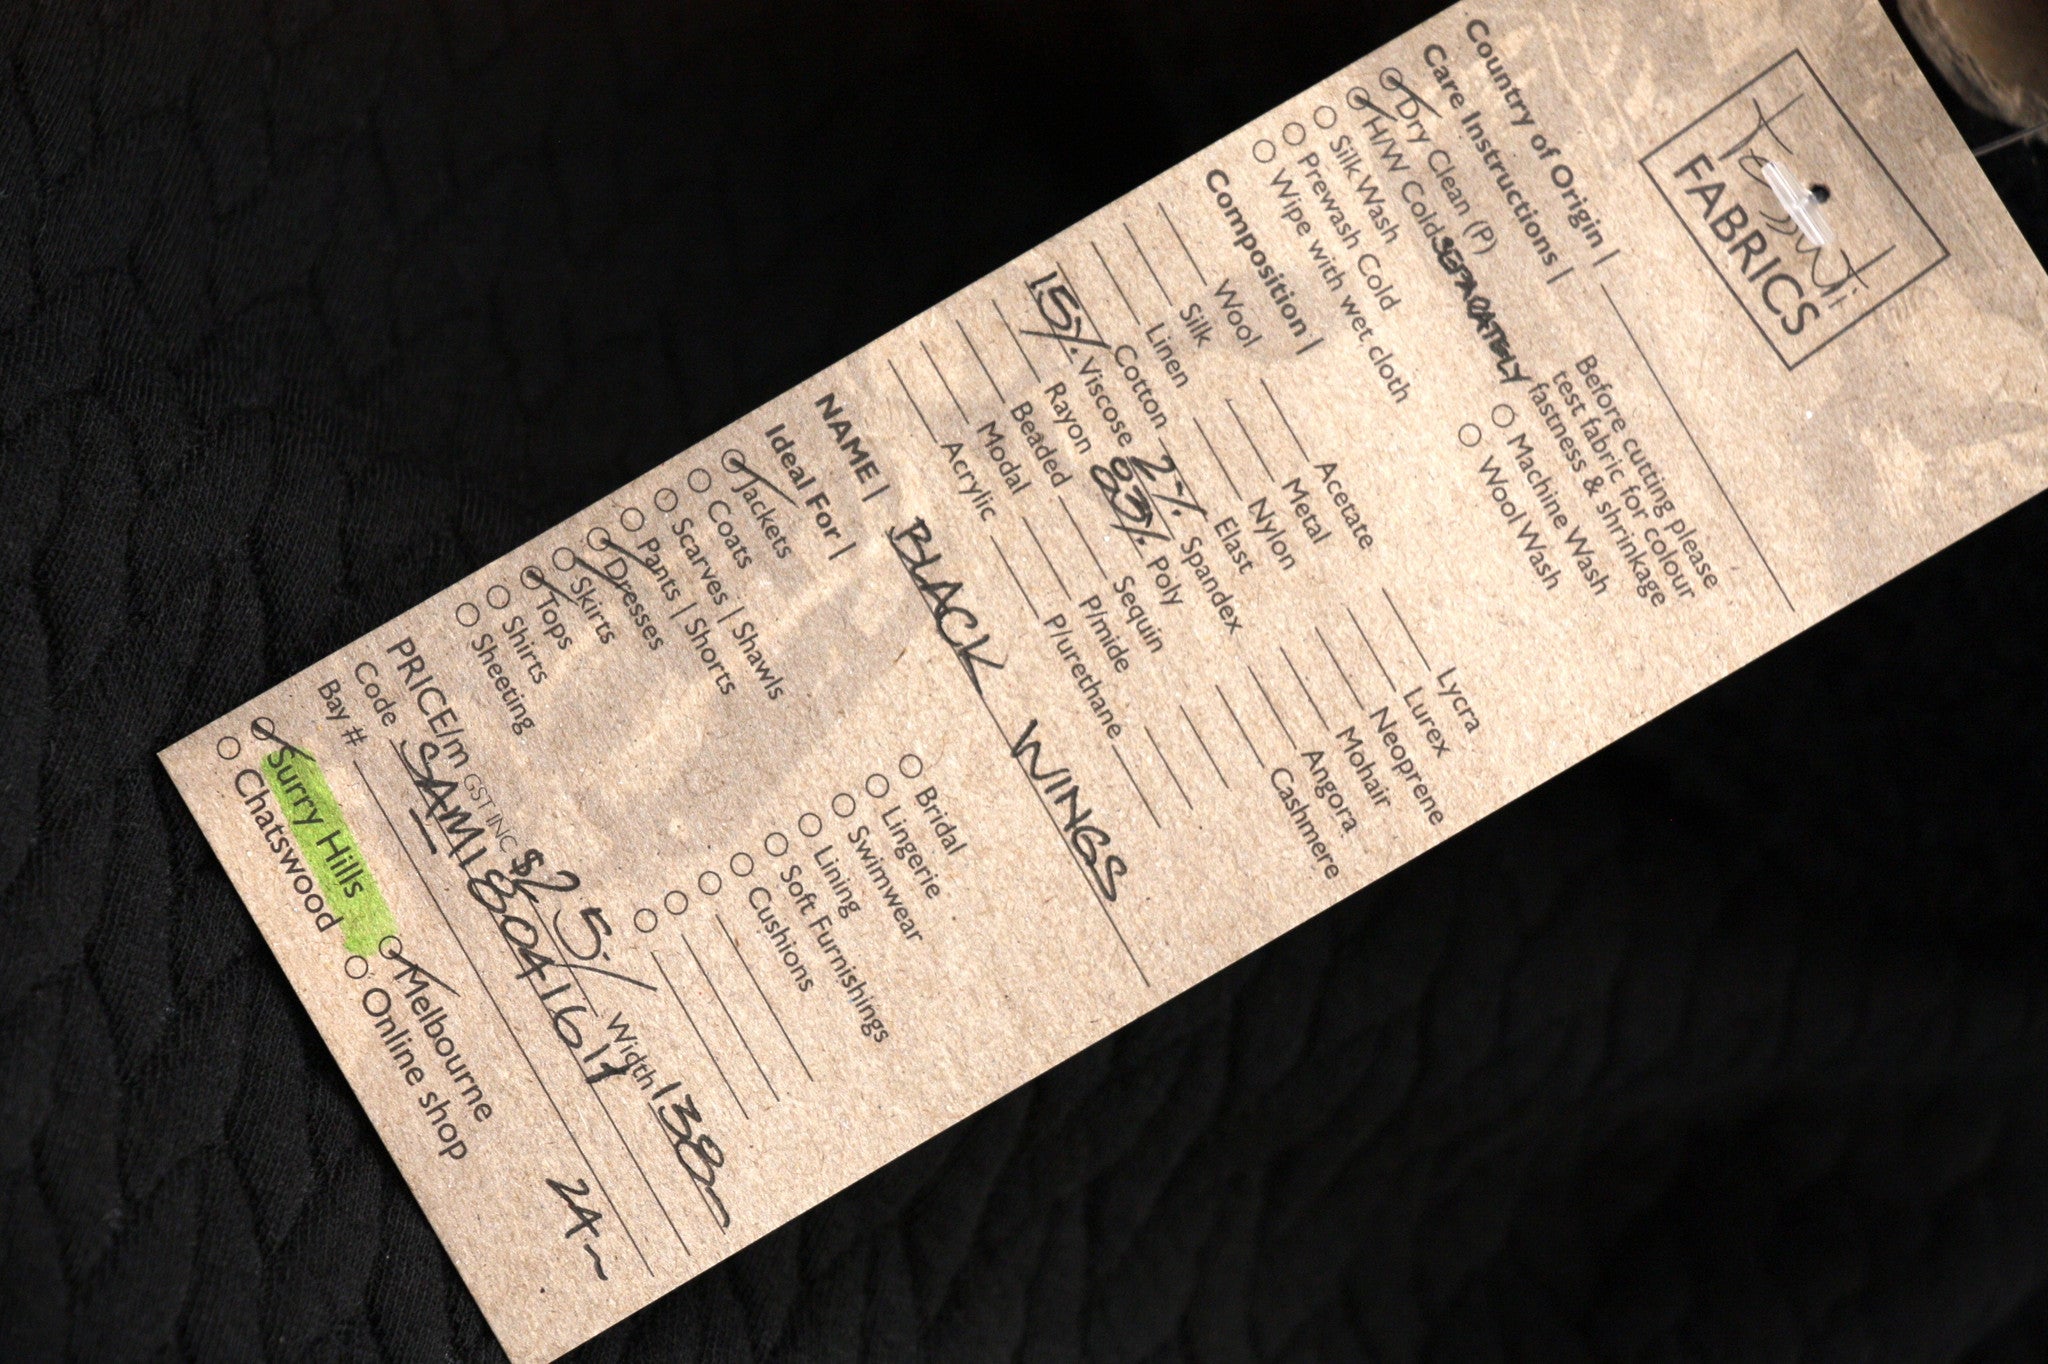 Tessuti
FABRICS
Country of Origin |
Care Instructions |
Before cutting please
test fabric for colour
fastness & shrinkage
Dry Clean (P)
H/W Cold SEPARATELY
Silk Wash
Prewash Cold
Wipe with wet cloth
Machine Wash
Wool Wash
Composition |
Wool
Silk
Linen
Cotton
15% Viscose
Rayon
Beaded
Modal
Acrylic
Acetate
Metal
Nylon
Elast
2% Spandex
83% Poly
Sequin
P/mide
P/urethane
Lycra
Lurex
Neoprene
Mohair
Angora
Cashmere
NAME | BLACK WINGS
Ideal For |
Jackets
Coats
Scarves | Shawls
Pants | Shorts
Dresses
Skirts
Tops
Shirts
Sheeting
Bridal
Lingerie
Swimwear
Lining
Soft Furnishings
Cushions
PRICE/m GST INC $25/ Width 138~
Code
Bay #
24~
Surry Hills
Chatswood
Melbourne
Online shop